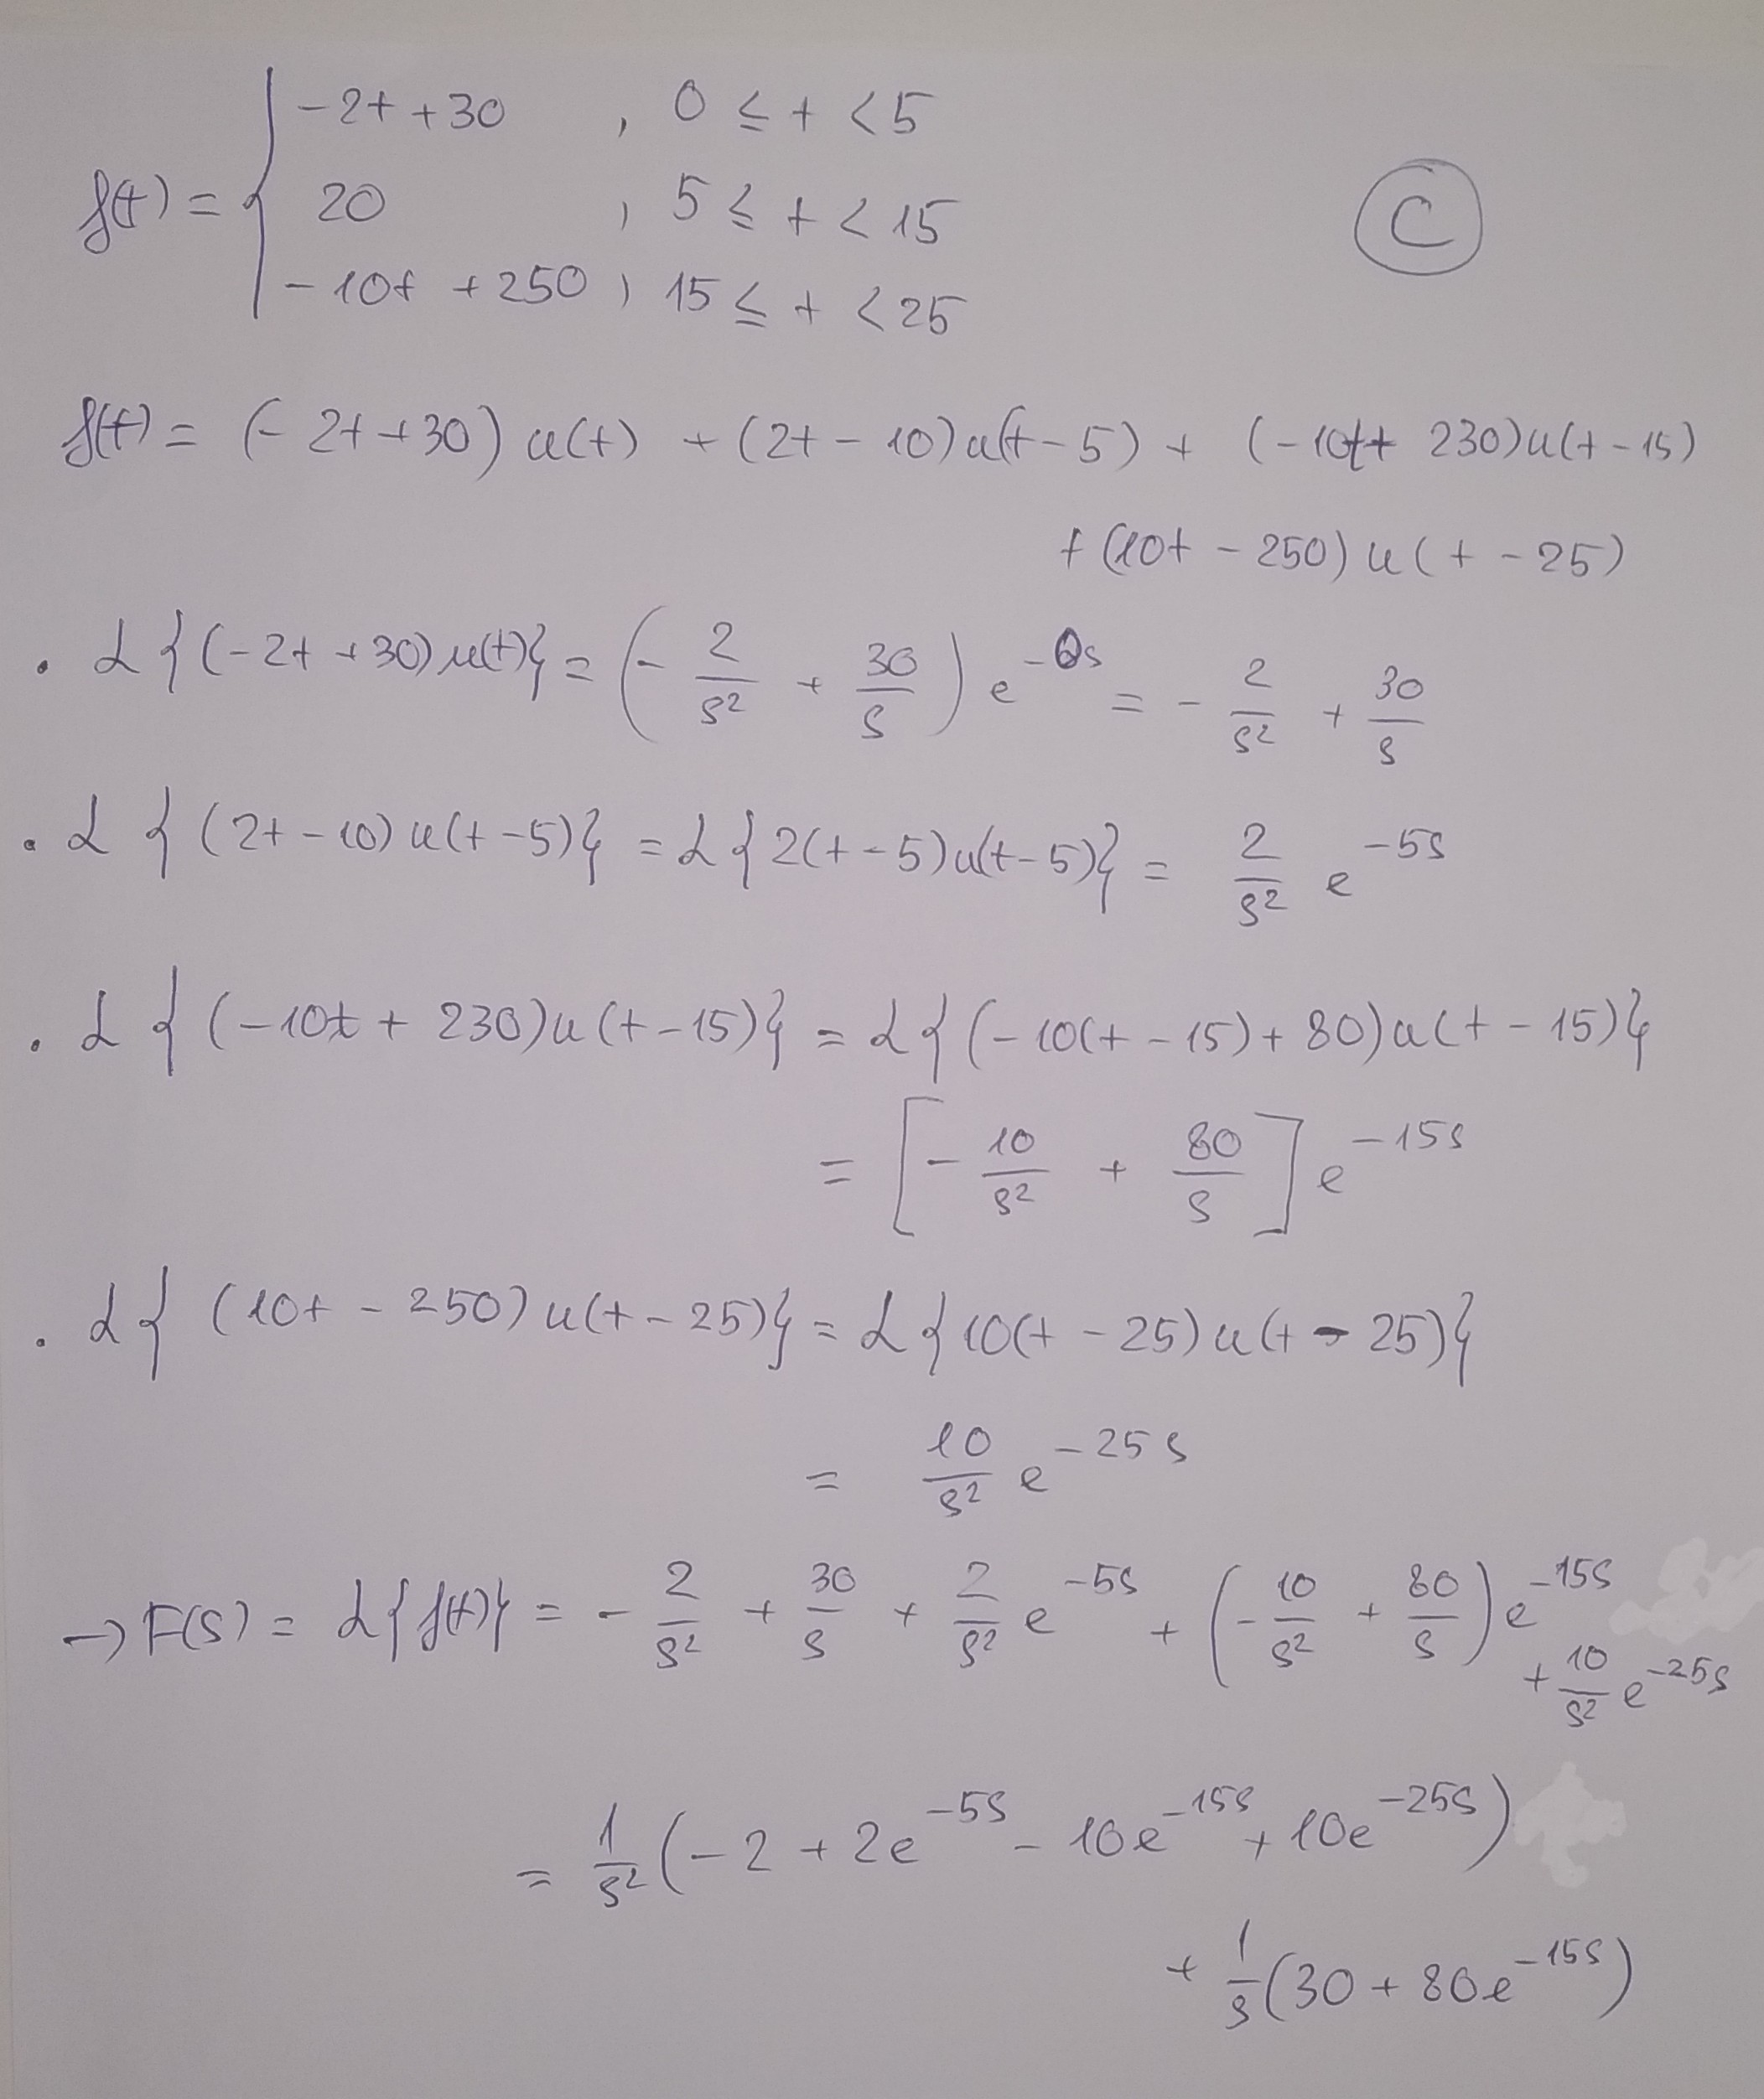 f(t) = { -2t + 30 , 0 ≤ t < 5
20 , 5 ≤ t < 15
-10t + 250 , 15 ≤ t < 25
C
f(t) = (-2t + 30) u(t) + (2t - 10) u(t - 5) + (-10t + 230) u(t - 15)
+ (10t - 250) u(t - 25)
. ℒ{(-2t + 30) u(t)} = (-2/s² + 30/s) e^{-0s} = -2/s² + 30/s
. ℒ{(2t - 10) u(t - 5)} = ℒ{2(t - 5) u(t - 5)} = 2/s² e^{-5s}
. ℒ{(-10t + 230) u(t - 15)} = ℒ{(-10(t - 15) + 80) u(t - 15)}
= [-10/s² + 80/s] e^{-15s}
. ℒ{(10t - 250) u(t - 25)} = ℒ{10(t - 25) u(t - 25)}
= 10/s² e^{-25s}
→ F(s) = ℒ{f(t)} = -2/s² + 30/s + 2/s² e^{-5s} + (-10/s² + 80/s) e^{-15s}
+ 10/s² e^{-25s}
= 1/s² (-2 + 2e^{-5s} - 10e^{-15s} + 10e^{-25s})
+ 1/s (30 + 80e^{-15s})